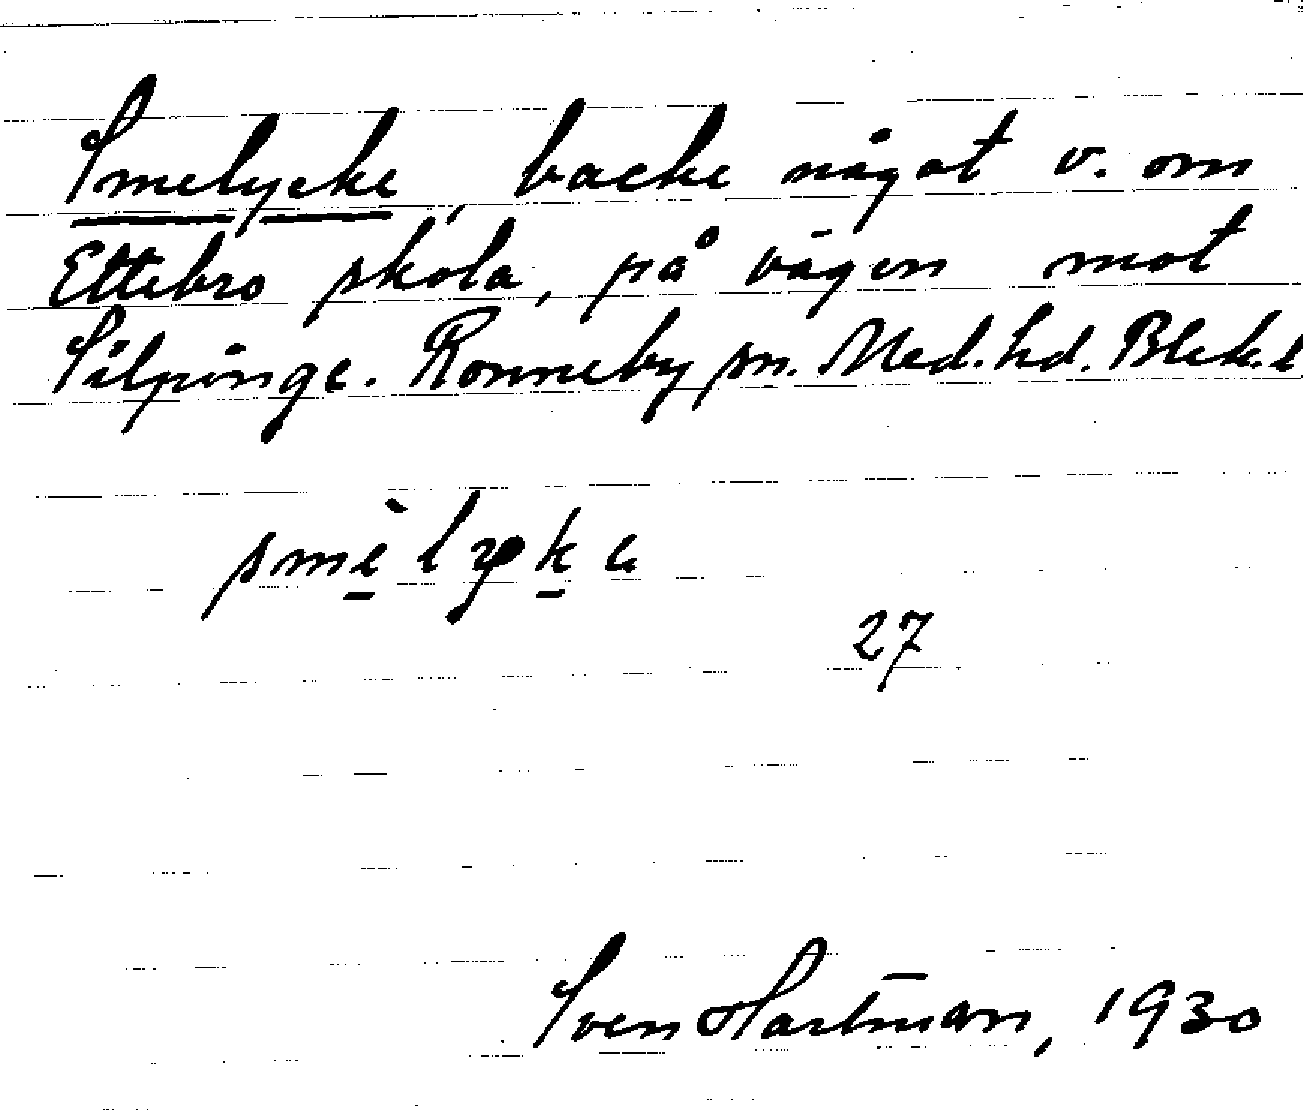 Smelycke, backe något v. om
Ettebro skola, på vägen mot
Silpinge. Ronneby sn. Med. hd. Blek. l
smè̱lyḵe
27
Sven Hartman, 1930